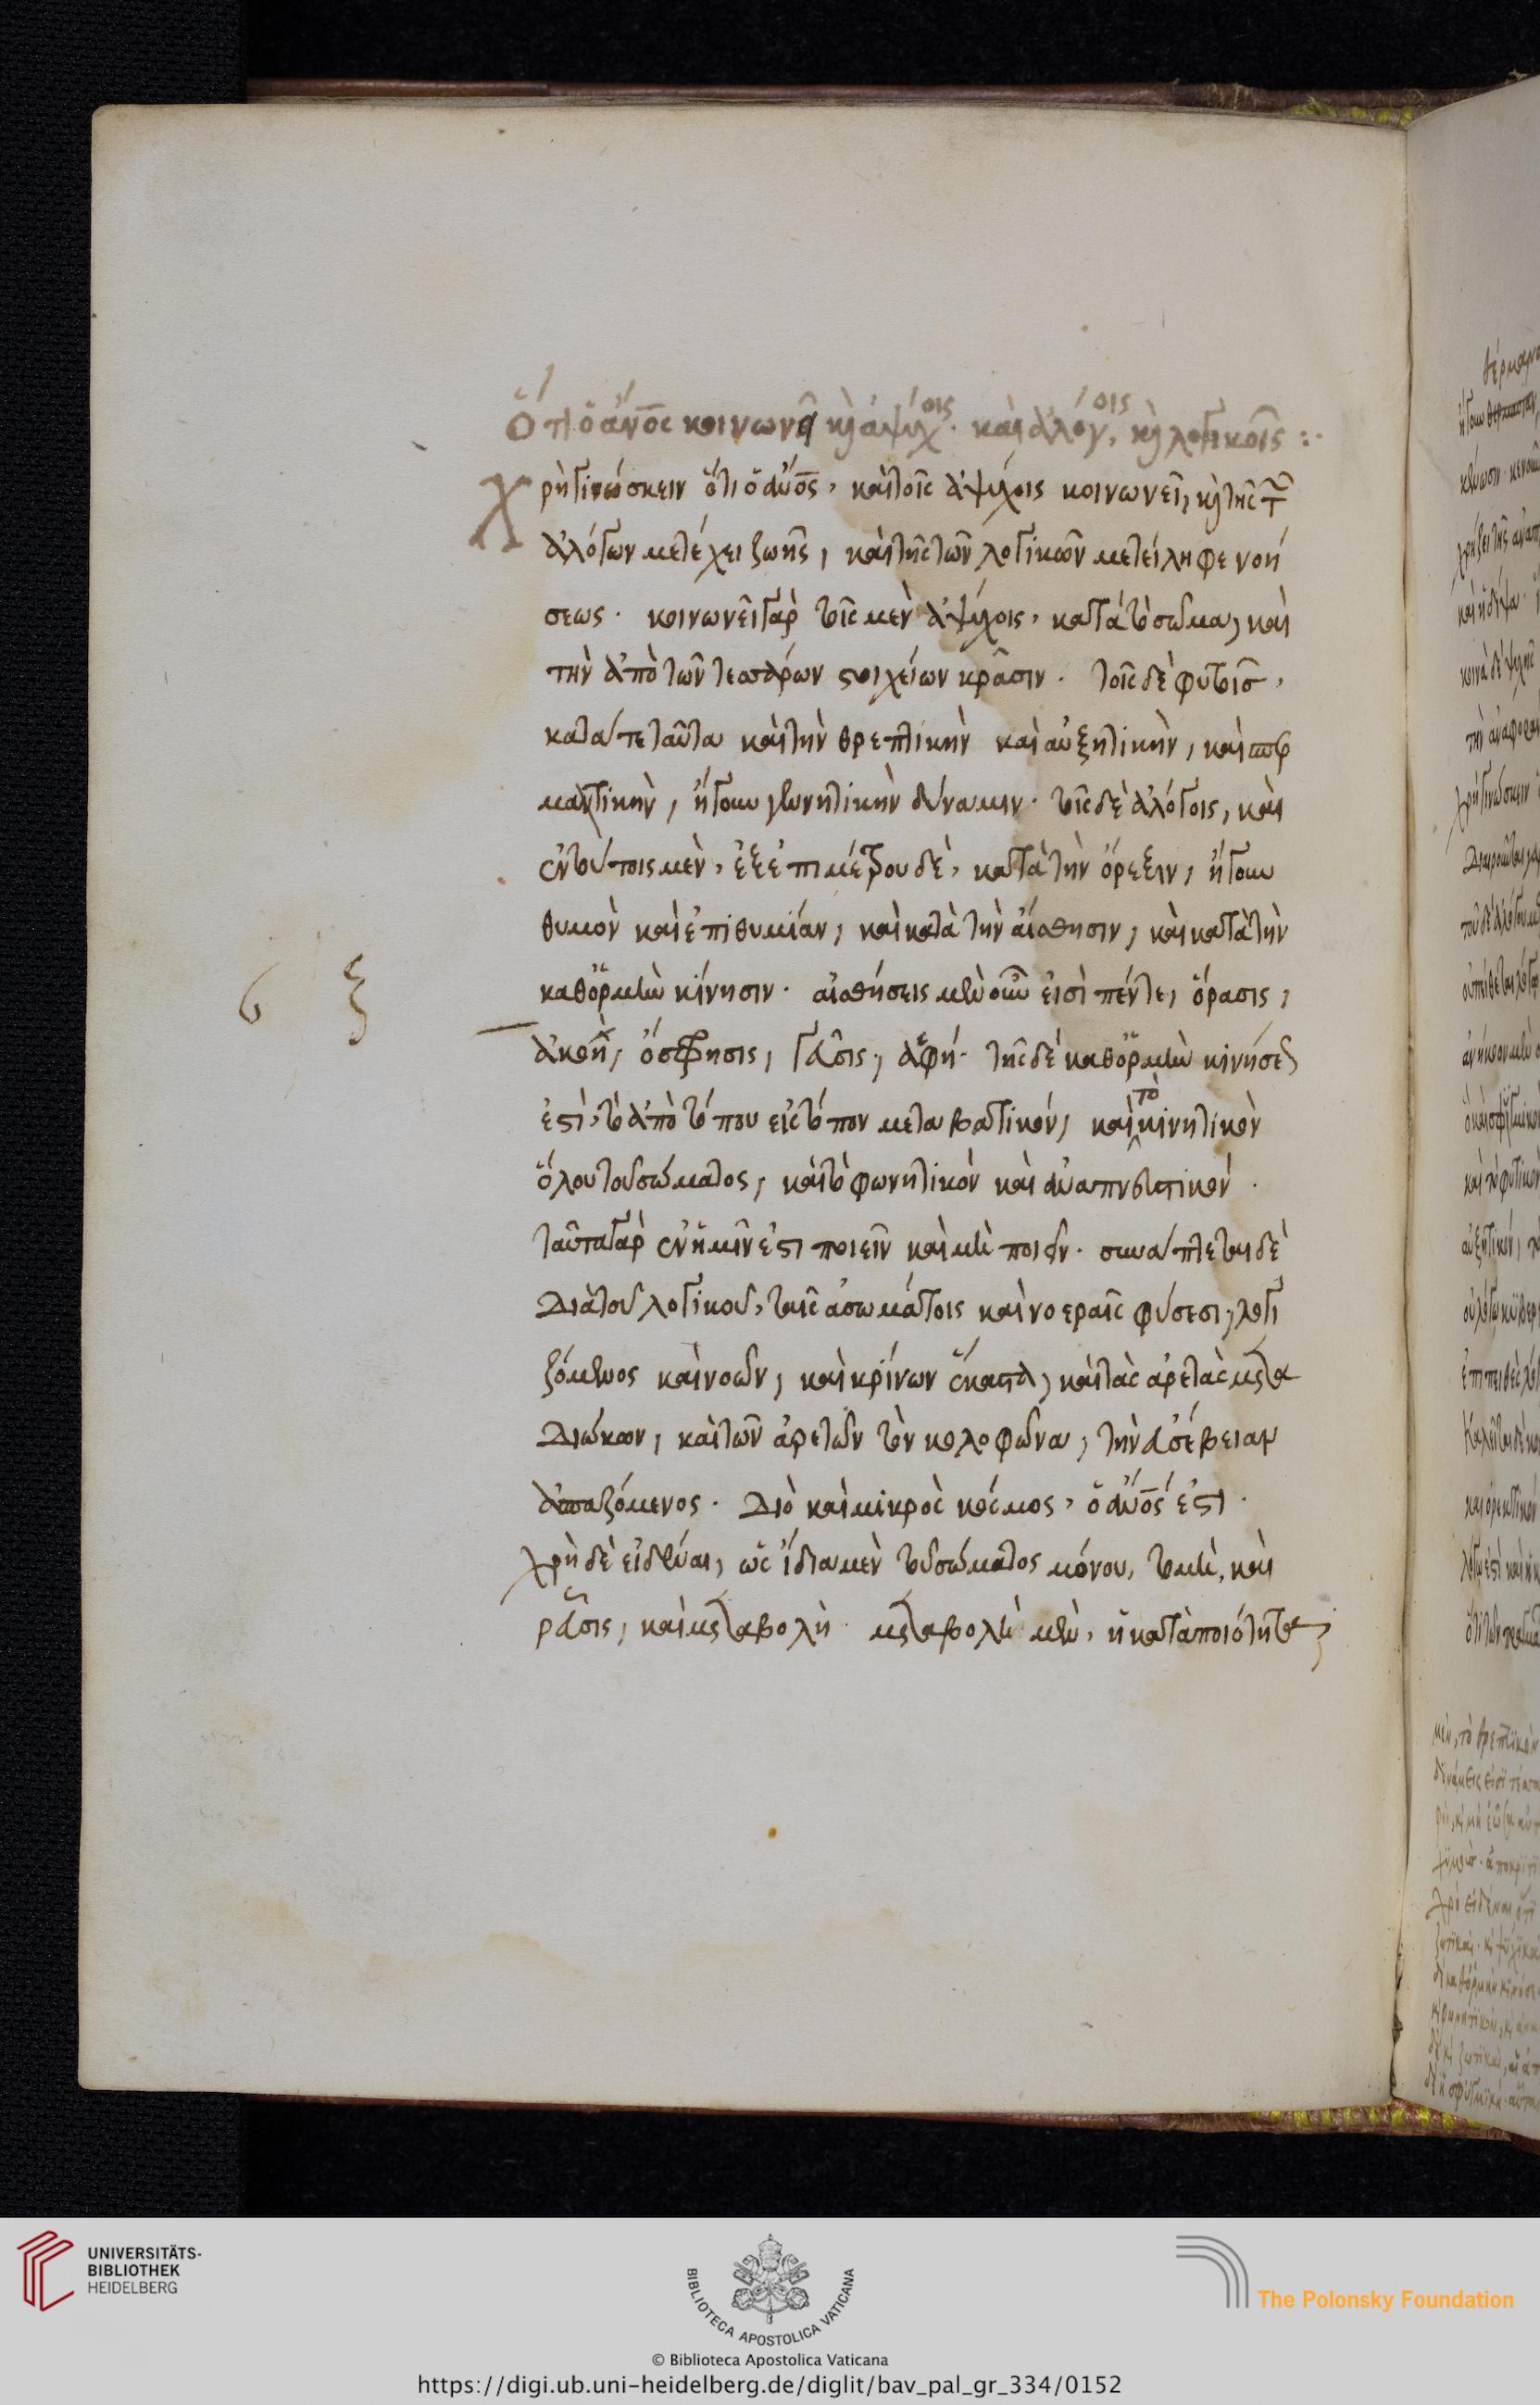 Ὅτι ὁ ἄνος κοινωνεῖ κὶ ἀψύχοις· καὶ ἀλόγοις, κὶ λογικοῖς :·
Χρὴ γινώσκειν ὅτι ὁ ἄνος, καὶ τοῖς ἀψύχοις κοινωνεῖ, κὶ τῆς τ
ἀλόγων μετέχει ζωῆς, καὶ τῆς τῶν λογικῶν μετείληφε νοή
σεως. κοινωνεῖ γὰρ τοῖς μὲν ἀψύχοις, κατὰ τὸ σῶμα, καὶ
τὴν ἀπὸ τῶν τεσσάρων στοιχείων κρᾶσιν. τοῖς δὲ φυτοῖς,
κατά τε ταῦτα καὶ τὴν θρεπτικὴν καὶ αὐξητικὴν, καὶ σπερ
ματικὴν, ἤγουν γεννητικὴν δύναμιν. τοῖς δὲ ἀλόγοις, καὶ
ἐν τούτοις μὲν, ἐξ ἐπιμέτρου δὲ, κατὰ τὴν ὄρεξιν, ἤγουν
θυμὸν καὶ ἐπιθυμίαν, καὶ κατὰ τὴν αἴσθησιν, καὶ κατὰ τὴν
καθ' ὁρμὴν κίνησιν. αἰσθήσεις μὲν οὖν εἰσὶ πέντε, ὅρασις,
ἀκοὴ, ὄσφρησις, γεῦσις, ἁφή. τῆς δὲ καθ' ὁρμὴν κινήσεώς
ἐστι, τὸ ἀπὸ τόπου εἰς τόπον μεταβατικόν, καὶ τὸ κινητικὸν
ὅλου τοῦ σώματος, καὶ τὸ φωνητικὸν καὶ ἀναπνευστικόν.
ταῦτα γὰρ ἐν ἡμῖν ἐστι ποιεῖν καὶ μὴ ποιεῖν. συνάπτεται δὲ
διὰ τοῦ λογικοῦ, ταῖς ἀσωμάτοις καὶ νοεραῖς φύσεσι, λογι
ζόμενος καὶ νοῶν, καὶ κρίνων ἕκαστα, καὶ τὰς ἀρετὰς μετα
διώκων, καὶ τῶν ἀρετῶν τὸν κολοφῶνα, τὴν εὐσέβειαν
ἀσπαζόμενος. διὸ καὶ μικρὸς κόσμος, ὁ ἄνος ἐστι.
χρὴ δὲ εἰδέναι, ὡς ἴδια μὲν τοῦ σώματος μόνου, τομὴ, καὶ
ῥεῦσις, καὶ μεταβολὴ. μεταβολὴ μὲν, ἡ κατὰ ποιότητα,
6 ξ
UNIVERSITÄTS-
BIBLIOTHEK
HEIDELBERG
BIBLIOTECA APOSTOLICA VATICANA
© Biblioteca Apostolica Vaticana
The Polonsky Foundation
https://digi.ub.uni-heidelberg.de/diglit/bav_pal_gr_334/0152